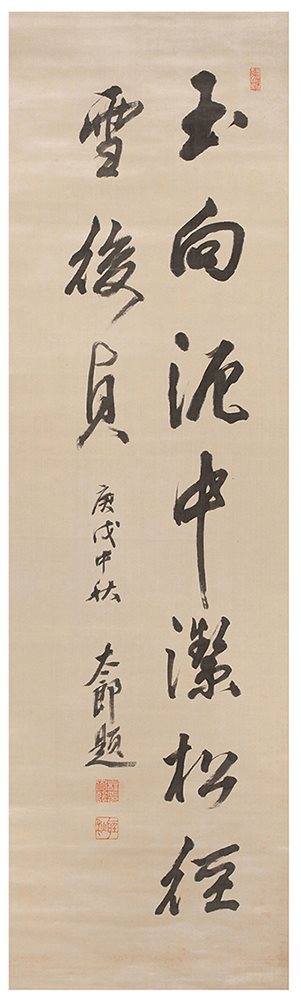 玉向泥中潔松経
雪後貞
庚戌中秋 太郎題